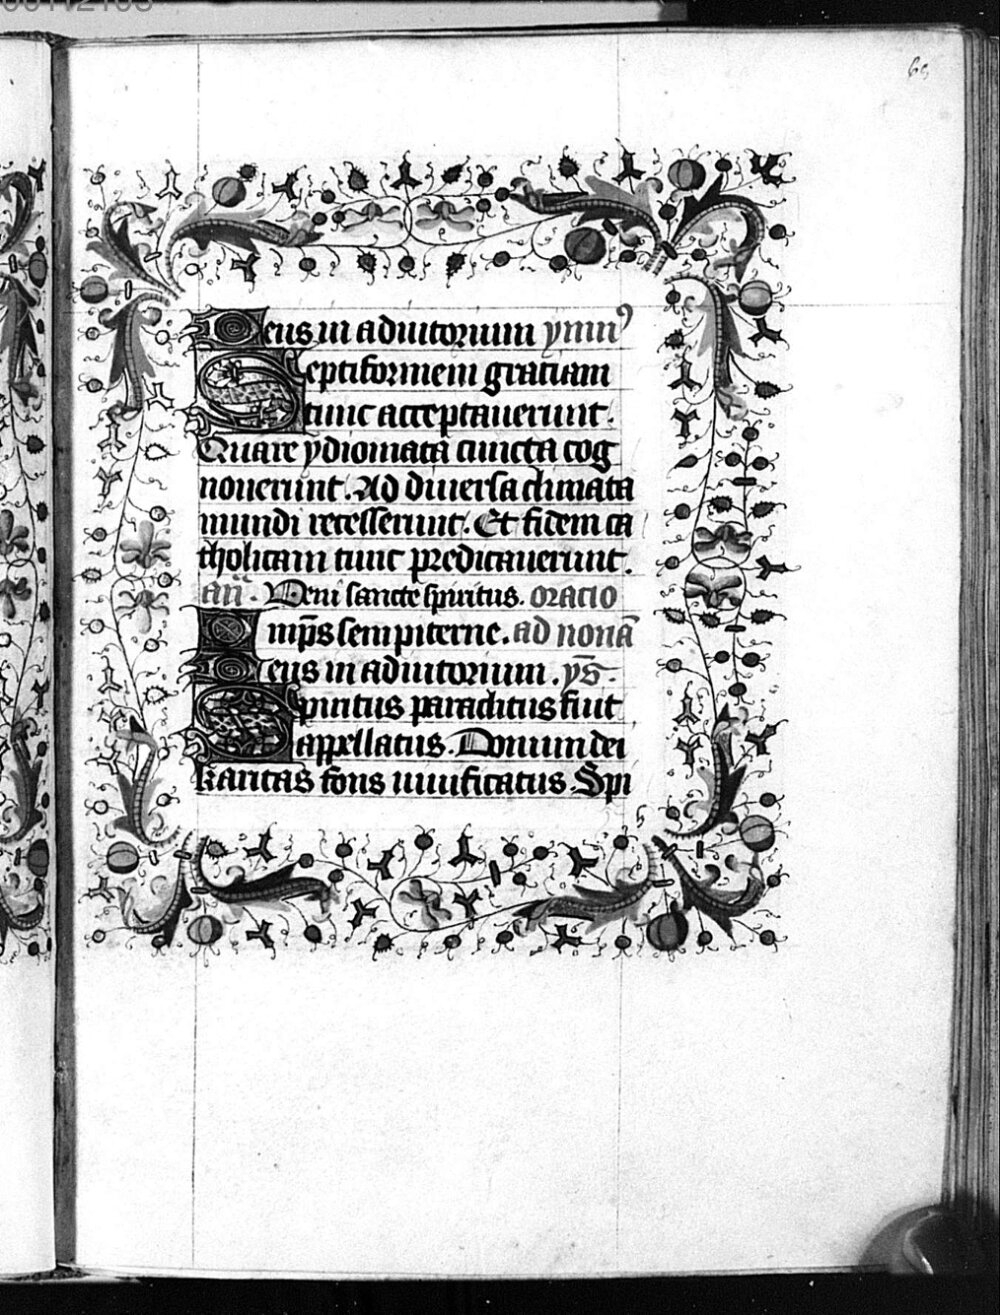 Deus in adiutorium ymnꝰ
Septiformem gratiam
tunc acceptauerunt.
Quare ydiomata cuncta cog
nouerunt. Ad diuersa climata
mundi recesserunt. Et fidem ca
tholicam tunc predicauerunt.
añ. Veni sancte spiritus. oracio
Omp̄s sempiterne. ad nonā
Deus in adiutorium. ys̄.
Spiritus paraclitus fuit
appellatus. Donum dei
karitas fons uiuificatus. Spi